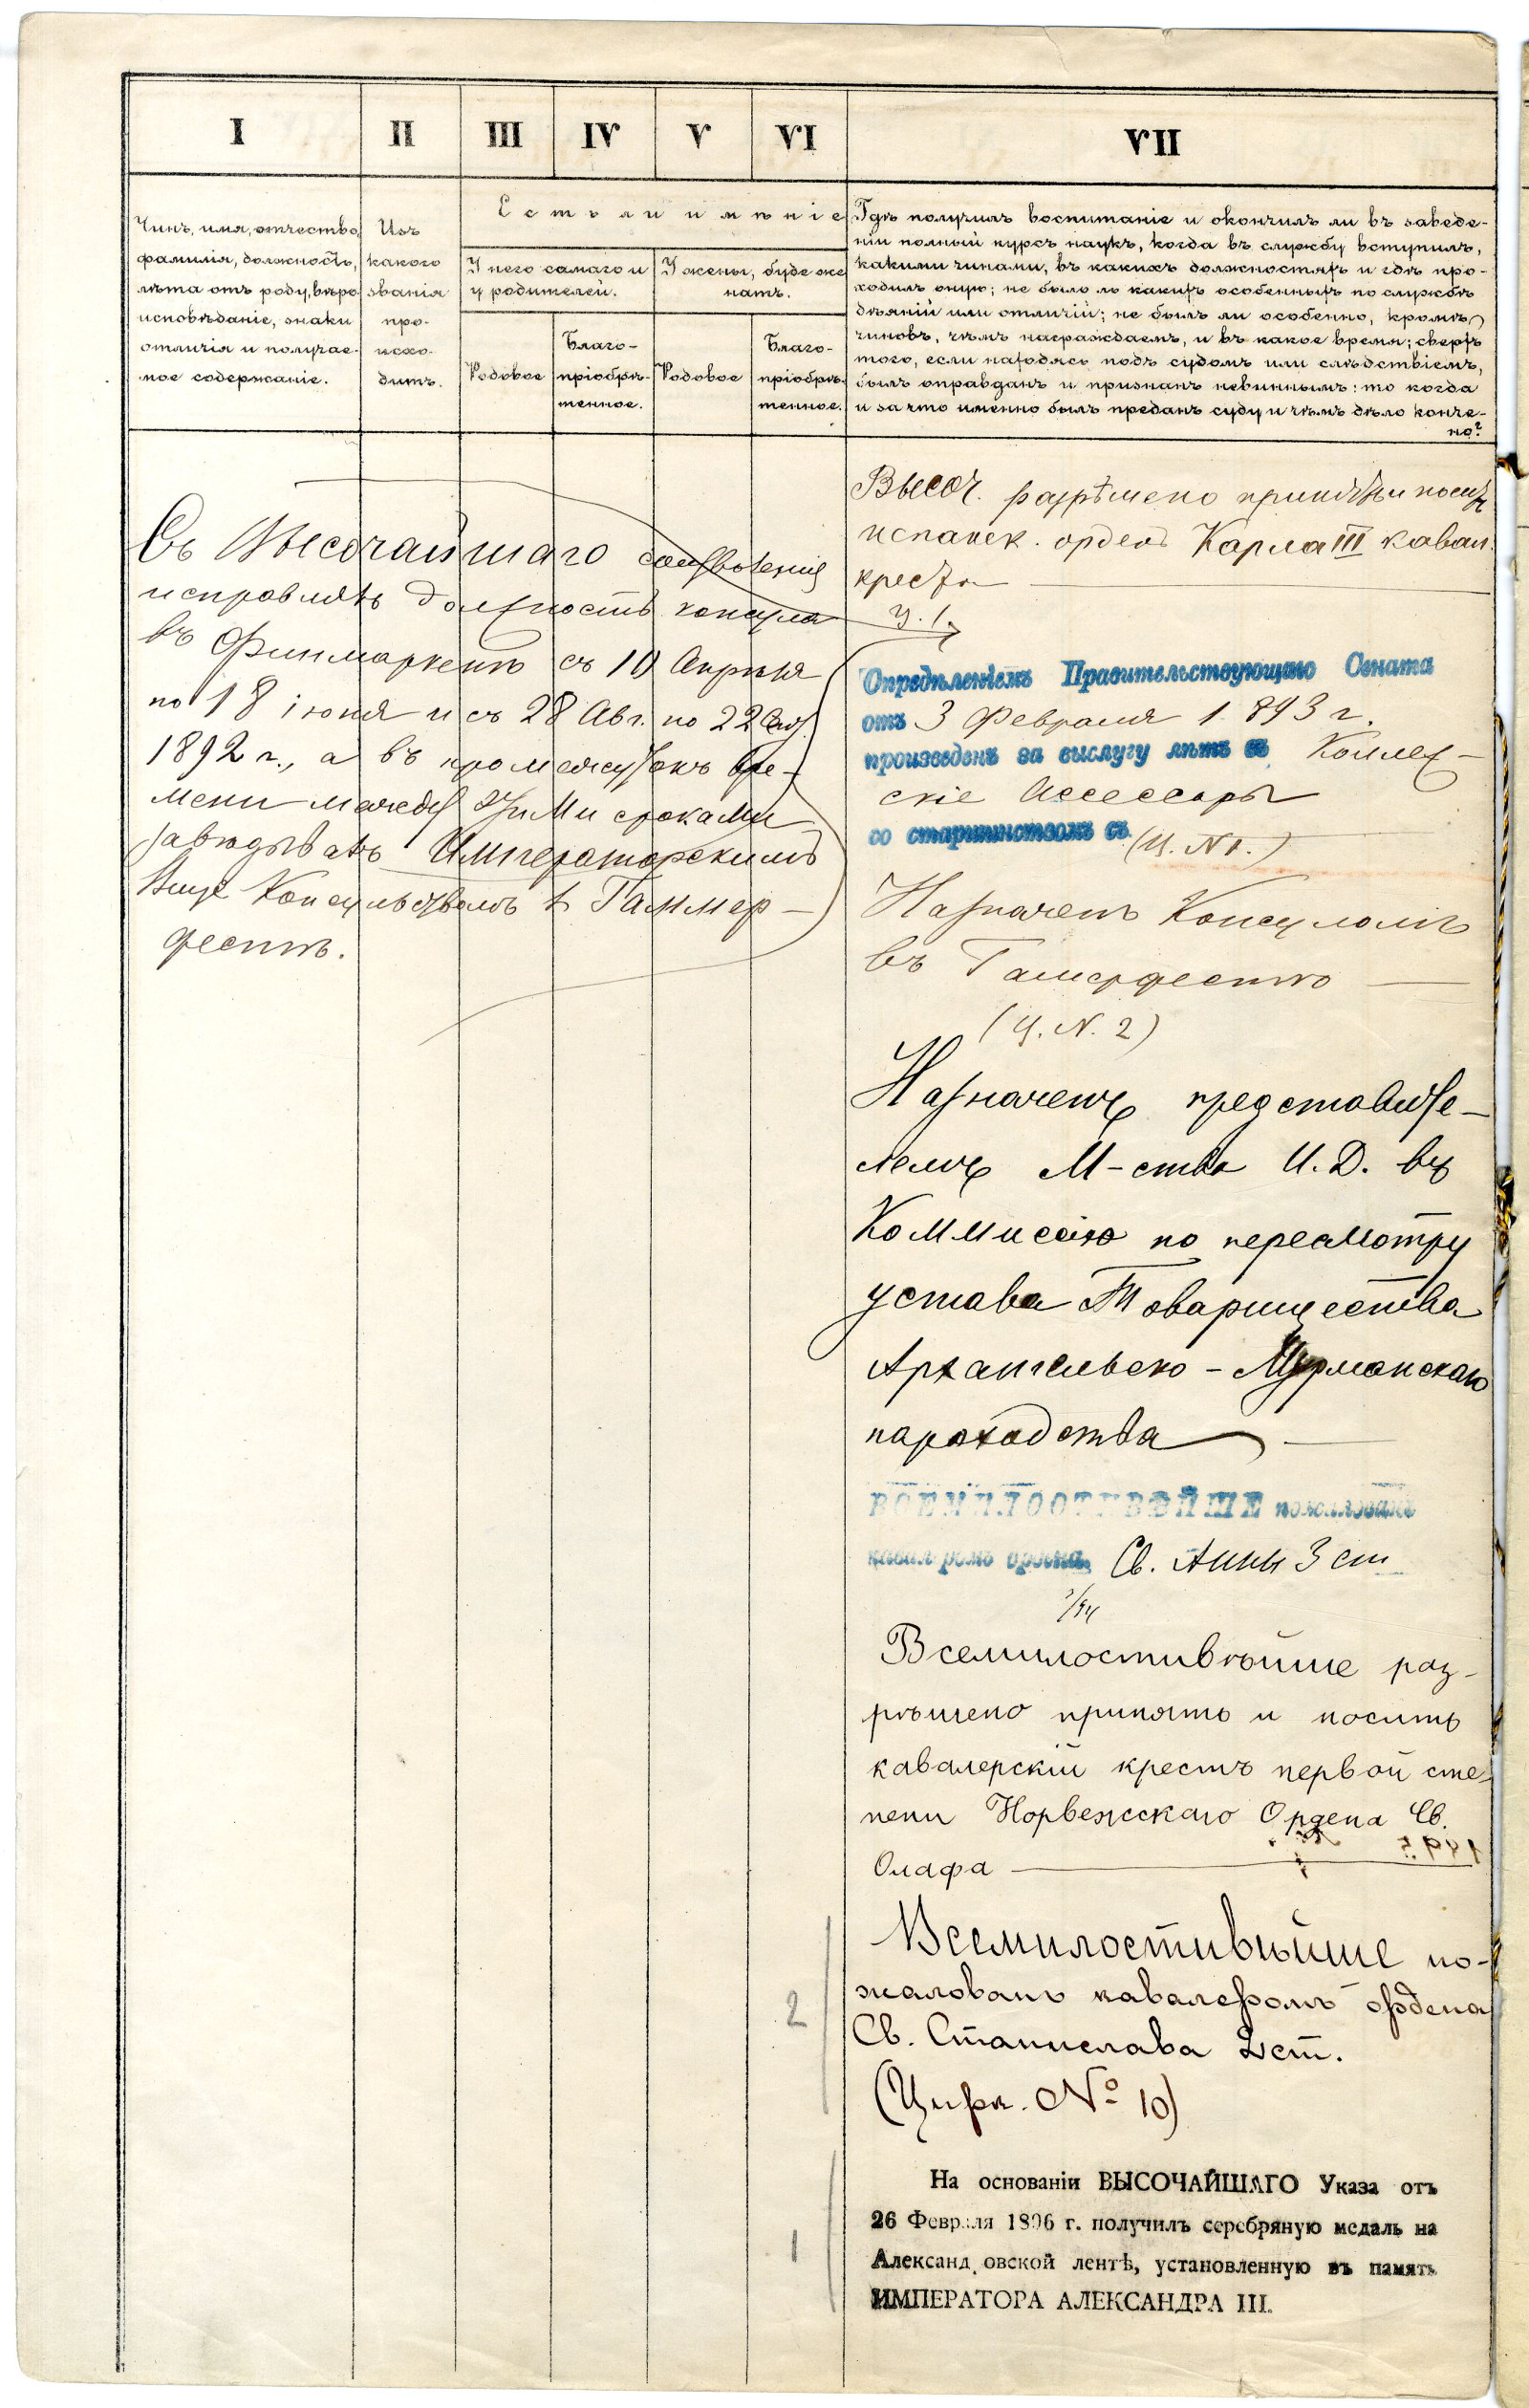 I II III IV V VI VII
Чинъ, имя, отчество,
фамилія, должность,
лѣта отъ роду, вѣро-
исповѣданіе, знаки
отличія и получае-
мое содержаніе.
Изъ
какого
званія
про-
исхо-
дитъ.
Есть ли имѣніе
У него самаго и
у родителей.
У жены, буде же-
натъ.
Родовое
Благо-
пріобрѣ-
тенное.
Родовое
Благо-
пріобрѣ-
тенное.
Гдѣ получилъ воспитаніе и окончилъ ли въ заведе-
ніи полный курсъ наукъ, когда въ службу вступилъ,
какими чинами, въ какихъ должностяхъ и гдѣ про-
ходилъ оную; не было ли какихъ особенныхъ по службѣ
дѣяній или отличій; не былъ ли особенно, кромѣ
чиновъ, чѣмъ награждаемъ, и въ какое время; сверхъ
того, если находясь подъ судомъ или слѣдствіемъ,
былъ оправданъ и признанъ невиннымъ: то когда
и за что именно былъ преданъ суду и чѣмъ дѣло конче-
но?
Съ Высочайшаго соизволенія
исправлять должность консула
въ Финмаркенѣ съ 10 Апрѣля
по 18 іюня и съ 28 Авг. по 22
1892 г., а въ промежутокъ вре-
мени между этими сроками
завѣдывать Императорскимъ
Вице Консульствомъ въ Гаммер-
фестѣ.
Высоч. разрѣшено принять и носить
испанск. орденъ Карла III кавал.
креста
ц. 1.
Опредѣленіемъ Правительствующаго Сената
отъ 3 Февраля 1893 г.
произведенъ за выслугу лѣтъ въ Коллеж-
скіе Ассессоры
со старшинствомъ съ (Ц. N 1.)
Назначенъ Консуломъ
въ Гамерфестѣ
(Ц. N. 2)
Назначенъ представите-
лемъ М-ства И. Д. въ
Коммисію по пересмотру
устава Товарищества
Архангельско-Мурманскаго
пароходства
ВСЕМИЛОСТИВѢЙШЕ пожалованъ
кавалеромъ ордена Св. Анны 3 ст
/94
Всемилостивѣйше раз-
рѣшено принять и носить
кавалерскій крестъ первой сте-
пени Норвежскаго Ордена Св.
Олафа
Всемилостивѣйше по-
жалованъ кавалеромъ ордена
Св. Станислава 2 ст.
(Цирк. № 10)
2
На основаніи ВЫСОЧАЙШАГО Указа отъ
26 Февраля 1896 г. получилъ серебряную медаль на
Александровской лентѣ, установленную въ память
ИМПЕРАТОРА АЛЕКСАНДРА III.
1